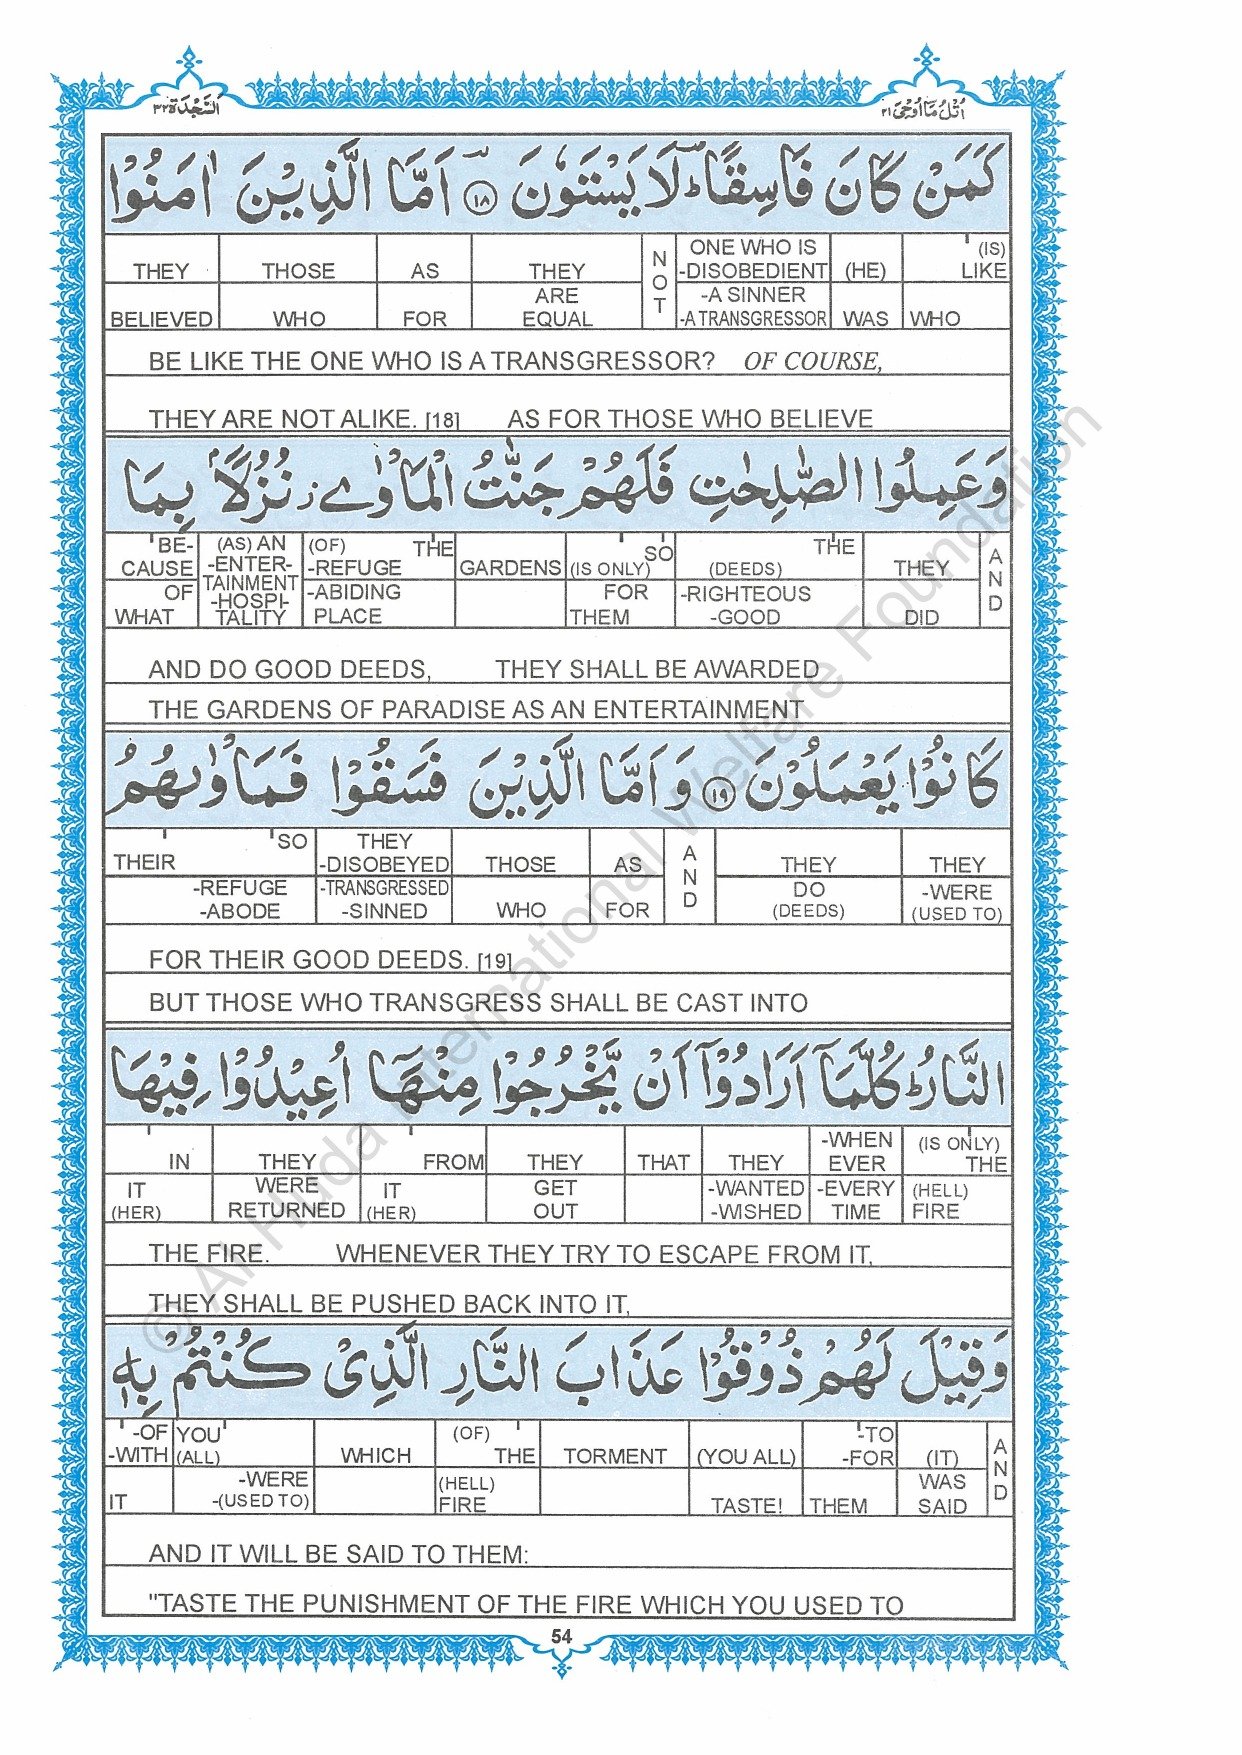 السَّجْدَة ٣٢
اُتْلُ مَا اُوْحِیَ ٢١
كَمَنْ كَانَ فَاسِقًا ؕ لَا يَسْتَوٗنَ ۞ ١٨ اَمَّا الَّذِيْنَ اٰمَنُوْا
THEY BELIEVED | THOSE WHO | AS FOR | THEY ARE EQUAL | NOT | ONE WHO IS -DISOBEDIENT -A SINNER -A TRANSGRESSOR | (HE) WAS | (IS) LIKE WHO
BE LIKE THE ONE WHO IS A TRANSGRESSOR? OF COURSE,
THEY ARE NOT ALIKE. [18] AS FOR THOSE WHO BELIEVE
وَعَمِلُوا الصّٰلِحٰتِ فَلَهُمْ جَنّٰتُ الْمَاْوٰى ز نُزُلًاۢ بِمَا
BE-CAUSE OF WHAT | (AS) AN -ENTER-TAINMENT -HOSPI-TALITY | (OF) THE -REFUGE -ABIDING PLACE | GARDENS | SO (IS ONLY) FOR THEM | THE (DEEDS) -RIGHTEOUS -GOOD | THEY DID | AND
AND DO GOOD DEEDS, THEY SHALL BE AWARDED
THE GARDENS OF PARADISE AS AN ENTERTAINMENT
كَانُوْا يَعْمَلُوْنَ ١٩ وَاَمَّا الَّذِيْنَ فَسَقُوْا فَمَاْوٰىهُمُ
SO THEIR -REFUGE -ABODE | THEY -DISOBEYED -TRANSGRESSED -SINNED | THOSE WHO | AS FOR | AND | THEY DO (DEEDS) | THEY -WERE (USED TO)
FOR THEIR GOOD DEEDS. [19]
BUT THOSE WHO TRANSGRESS SHALL BE CAST INTO
النَّارُ ؕ كُلَّمَاۤ اَرَادُوْۤا اَنْ يَّخْرُجُوْا مِنْهَاۤ اُعِيْدُوْا فِيْهَا
IN IT (HER) | THEY WERE RETURNED | FROM IT (HER) | THEY GET OUT | THAT | THEY -WANTED -WISHED | -WHEN EVER -EVERY TIME | (IS ONLY) THE (HELL) FIRE
THE FIRE. WHENEVER THEY TRY TO ESCAPE FROM IT,
THEY SHALL BE PUSHED BACK INTO IT,
وَقِيْلَ لَهُمْ ذُوْقُوْا عَذَابَ النَّارِ الَّذِىْ كُنْتُمْ بِهٖ
-OF -WITH IT | YOU (ALL) -WERE -(USED TO) | WHICH | (OF) THE (HELL) FIRE | TORMENT | (YOU ALL) TASTE! | -TO -FOR THEM | (IT) WAS SAID | AND
AND IT WILL BE SAID TO THEM:
"TASTE THE PUNISHMENT OF THE FIRE WHICH YOU USED TO
54
© Al-Huda International Welfare Foundation